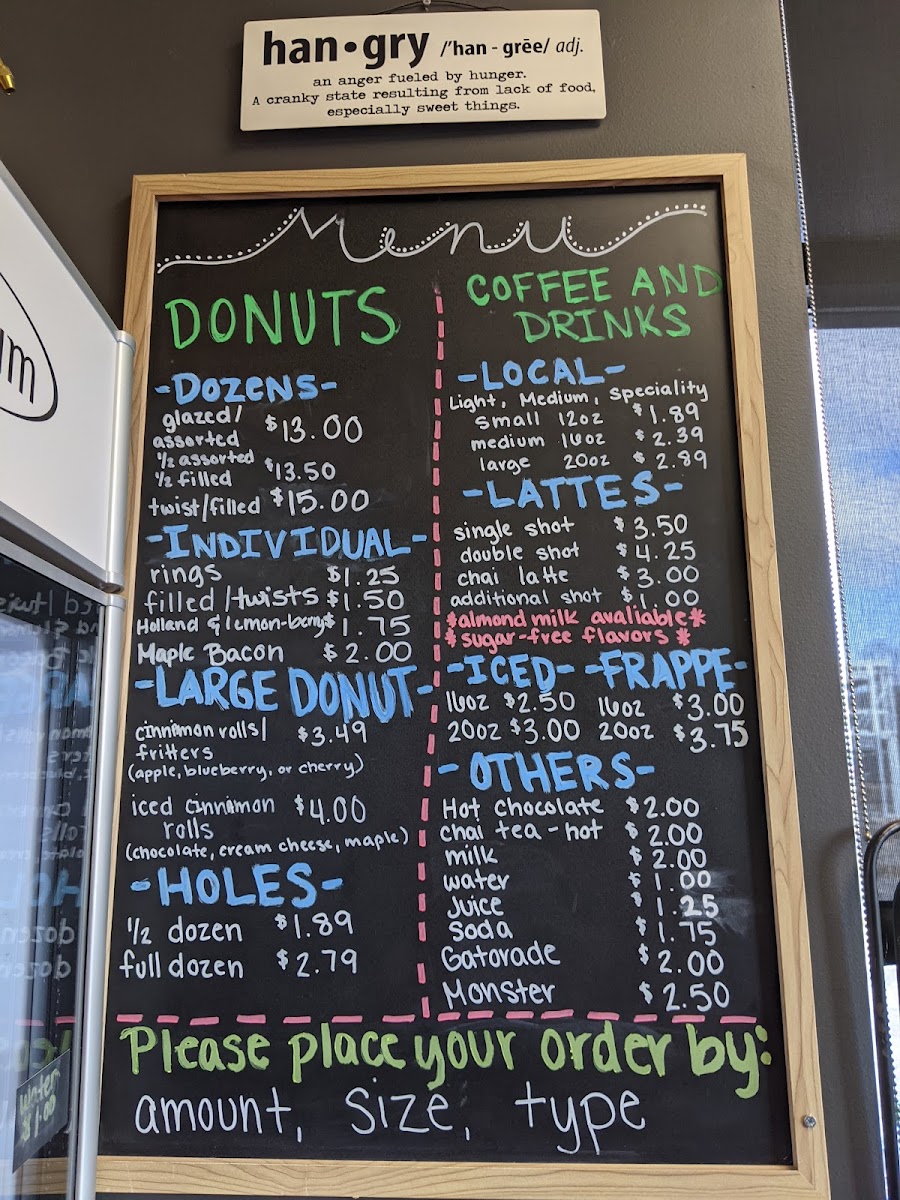 han•gry /'han - grēe/ adj.
an anger fueled by hunger.
A cranky state resulting from lack of food,
especially sweet things.
Menu
DONUTS
-DOZENS-
glazed/
assorted $13.00
1/2 assorted
1/2 filled $13.50
twist/filled $15.00
-INDIVIDUAL-
rings $1.25
filled/twists $1.50
Holland & lemon-berry $1.75
Maple Bacon $2.00
-LARGE DONUT-
cinnimon rolls/ $3.49
fritters
(apple, blueberry, or cherry)
iced cinnimon $4.00
rolls
(chocolate, cream cheese, maple)
-HOLES-
1/2 dozen $1.89
full dozen $2.79
COFFEE AND
DRINKS
-LOCAL-
Light, Medium, Speciality
Small 12oz $1.89
medium 16oz $2.39
large 20oz $2.89
-LATTES-
single shot $3.50
double shot $4.25
chai latte $3.00
additional shot $1.00
*almond milk avaliable*
*sugar-free flavors*
-ICED- -FRAPPE-
16oz $2.50 16oz $3.00
20oz $3.00 20oz $3.75
-OTHERS-
Hot chocolate $2.00
chai tea-hot $2.00
milk $2.00
water $1.00
Juice $1.25
Soda $1.75
Gatorade $2.00
Monster $2.50
Please place your order by:
amount, size, type
Water
$1.00